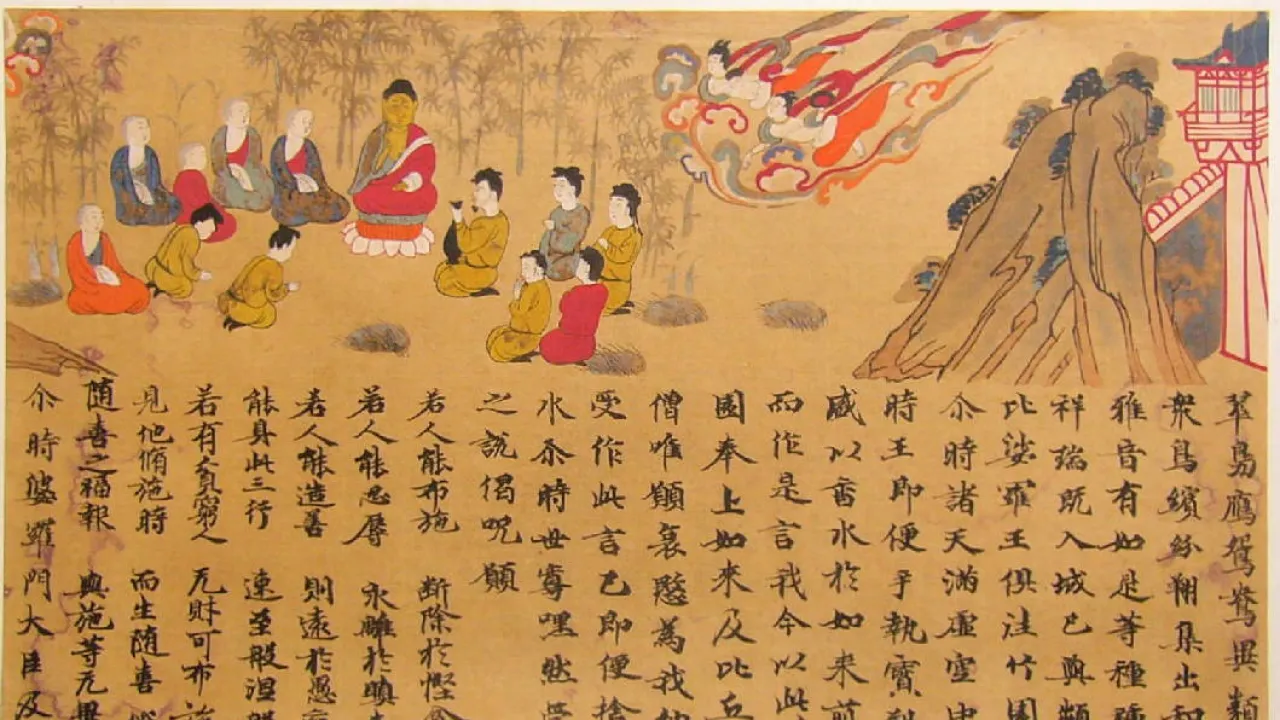 翠鳧鴈鴛鴦異類
衆鳥繽紛翔集出和
雅音有如是等種種
祥瑞既入城已與頻
比娑羅王俱往竹園
尒時諸天滿虛空中
時王即便手執寶
盛以香水於如來前
而作是言我今以此
園奉上如來及比丘
僧唯願哀愍為我納
受作此言已即便捨
水尒時世尊嘿然
之說偈呪願
若人能布施 斷除於慳
若人能忍辱 永離於瞋
若人能造善 則遠於愚
能具此三行 速至般涅
若有貧窮人 无財可布
見他脩施時 而生随喜
随喜之福報 與施等无異
尒時婆羅門大臣及